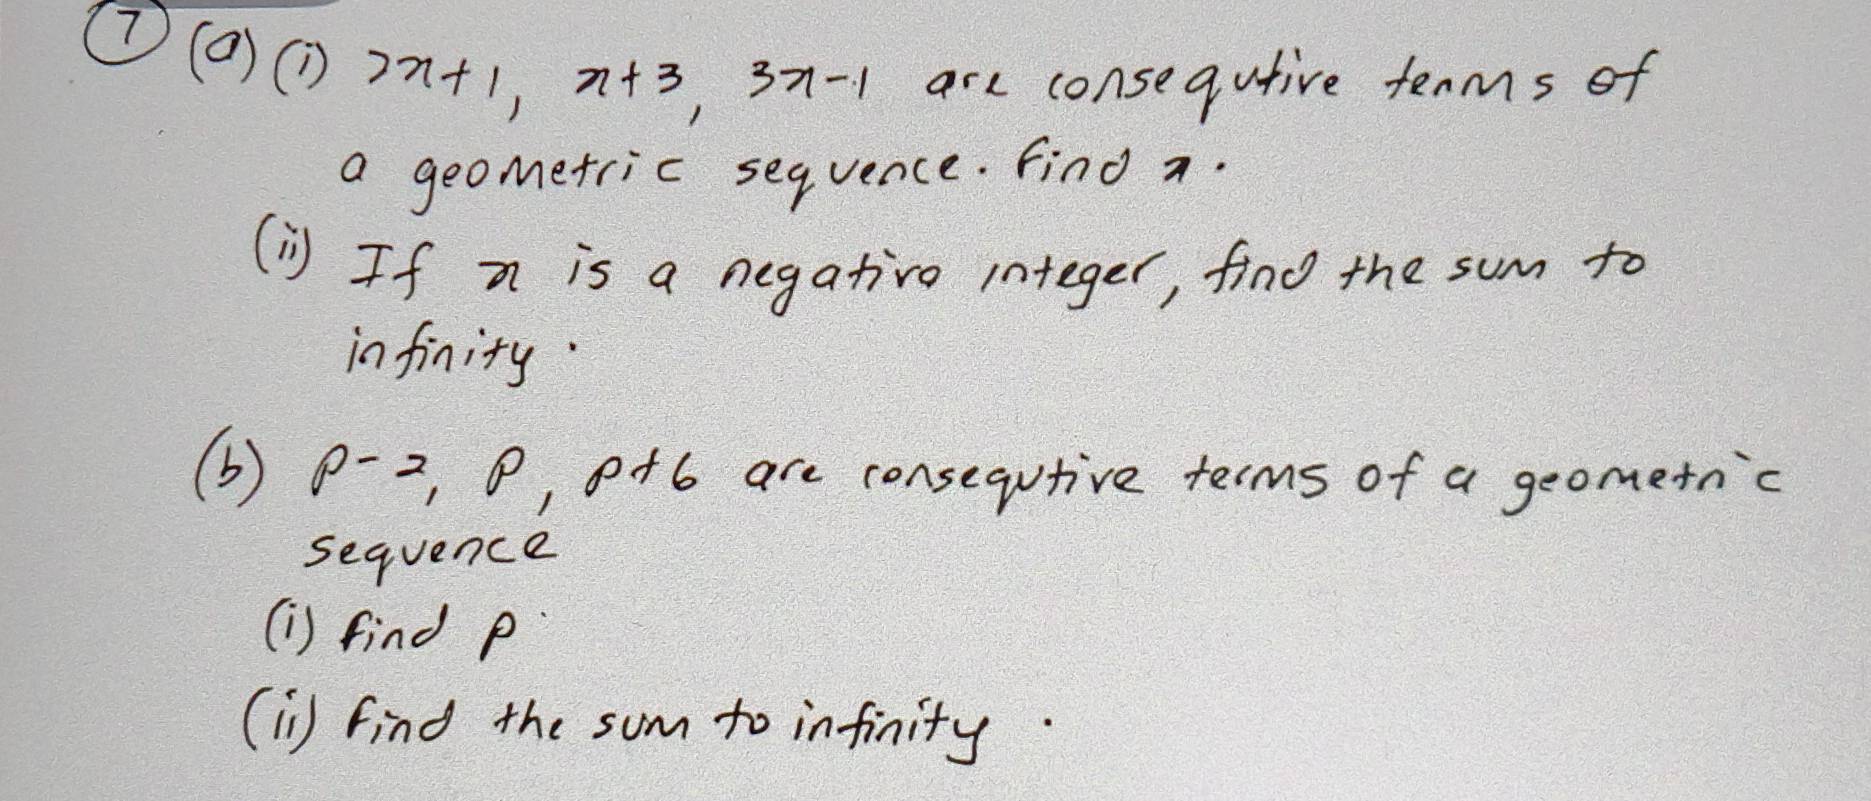 7 (a) (i) 2x+1, x+3, 3x-1 are consequtive terms of
a geometric sequence. Find x.
(ii) If x is a negative integer, find the sum to
infinity.
(b) p-2, p, p+6 are consequtive terms of a geometric
sequence
(i) find p
(ii) find the sum to infinity.